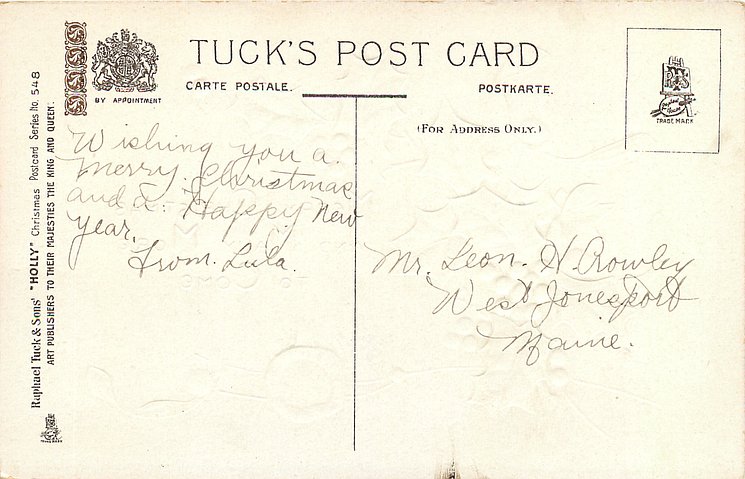 TUCK'S POST CARD
CARTE POSTALE.
POSTKARTE.
(FOR ADDRESS ONLY.)
BY APPOINTMENT
TRADE MARK
Raphael Tuck & Sons' "HOLLY" Christmas Postcard Series No. 548
ART PUBLISHERS TO THEIR MAJESTIES THE KING AND QUEEN.
Wishing you a
Merry Christmas
and a Happy New
Year.
From Lula.
Mr. Leon. H Crowley
West Jonesport
Maine.